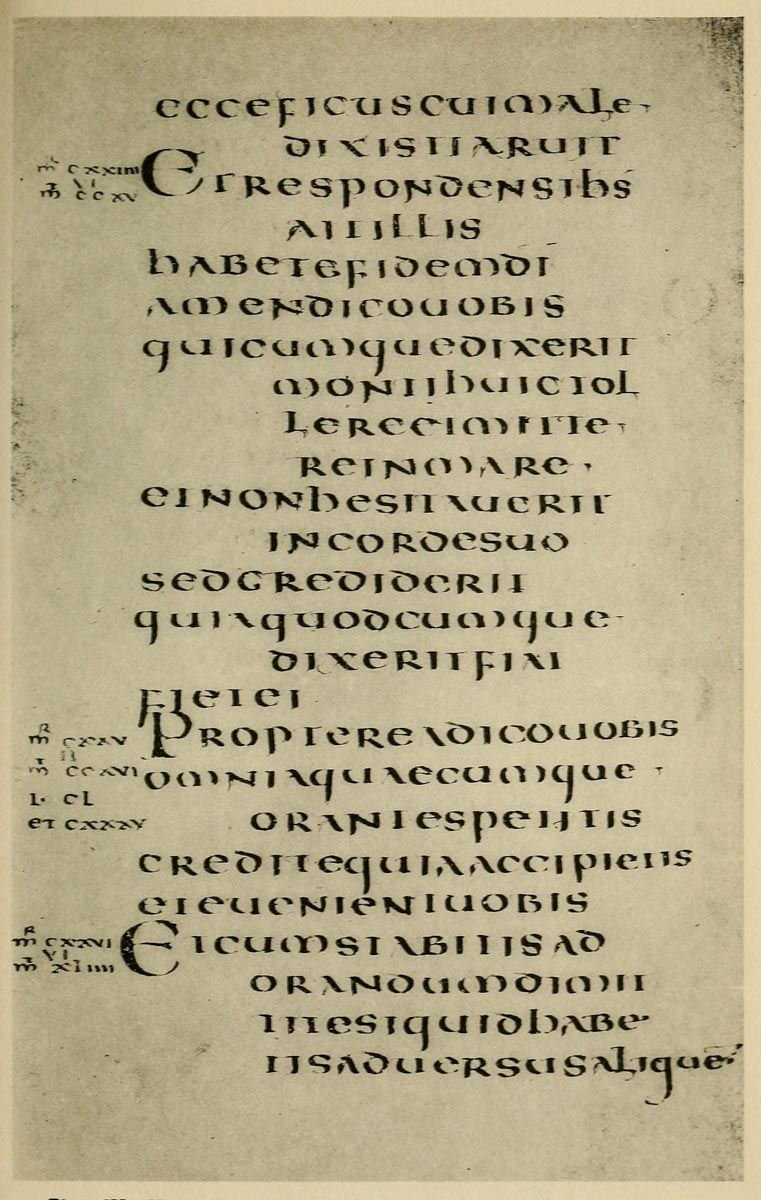 ecceficuscuimale
dixistiaruit
m̄ cxxiiii
m̄ ccxv
Etrespondensihs
aitillis
habetefidemdi
amendicouobis
quicumquedixerit
montihuictol
lereetmitte
reinmare
etnonhesitauerit
incordesuo
sedcrediderit
quiaquodcumque
dixeritfiat
fietei
m̄ cxxv
m̄ ccxvi
l· cl
et cxxxv
Proptereadicouobis
omniaquaecumque
orantespetitis
creditequiaaccipietis
eteuenientuobis
m̄ cxxvi
vi
m̄ xliiii
Etcumstabitisad
orandumdimit
titesiquidhabe
tisaduersusaliquē